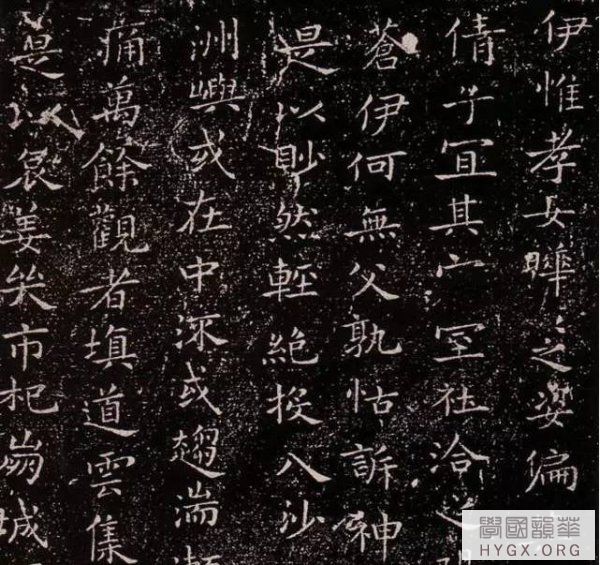 伊惟孝女曄〻之姿偏
倩子冝其宀室在洽
蒼伊何無父孰怙訴神
是以眇然輕絕投入沙
洲嶼或在中深或趨湍
痛萬餘觀者填道雲集
是以哀姜哭市杞崩城
華韻國學
HYGX.ORG